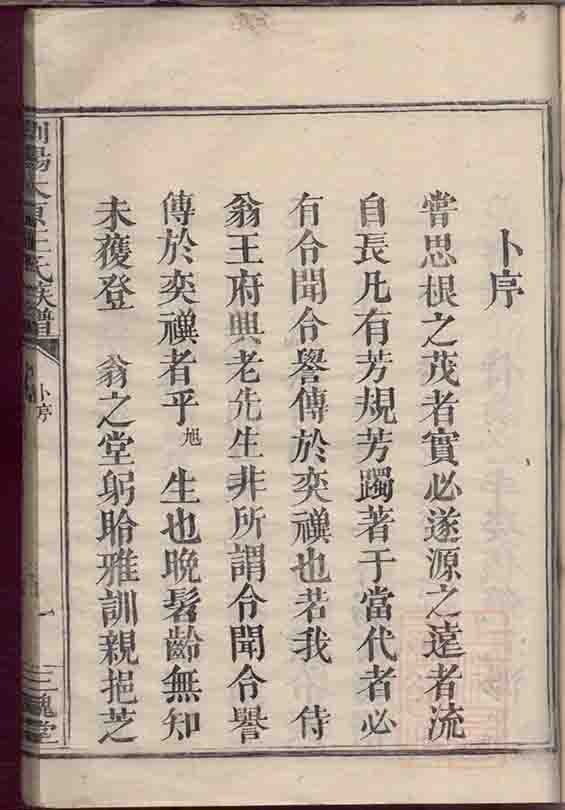 卜序
嘗思根之茂者實必遂源之遠者流
自長凡有芳規芳躅著于當代者必
有令聞令譽傳於奕禩也若我　侍
翁王府興老先生非所謂令聞令譽
傳於奕禩者乎旭　生也晚髫齡無知
未獲登　翁之堂躬聆雅訓親挹芝
陽太原王氏族譜
卜序
一
三槐堂